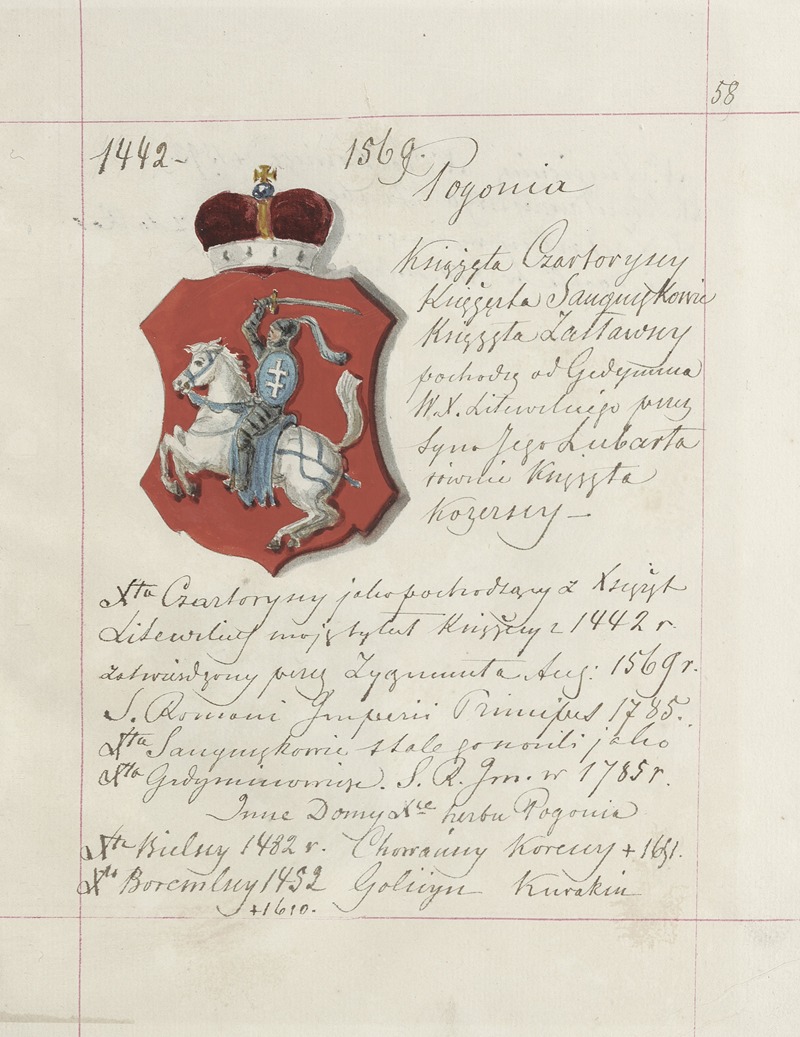 58
1442- 1569.
Pogonia
Książęta Czartoryscy
Książęta Sanguszkowie
Książęta Zasławscy
pochodzą od Gedymina
W.X. Litewskiego przez
syna Jego Lubarta
równie Książęta
Kozerscy –
Xta Czartoryscy jako pochodzący z Książąt
Litewskich mają tytuł Książęcy z 1442 r.
zatwierdzony przez Zygmunta Aug: 1569 r.
S. Romani Imperii Principes 1785.
Xta Sanguszkowie stale go nosili jako
Xta Gedyminowicze. S. R. Im. w 1785 r.
Inne Domy Xce herbu Pogonia
Xta Bielscy 1482 r. Chowańscy Korescy
Xta Boremlscy 1452 Golicyn Kurakin
+1610.